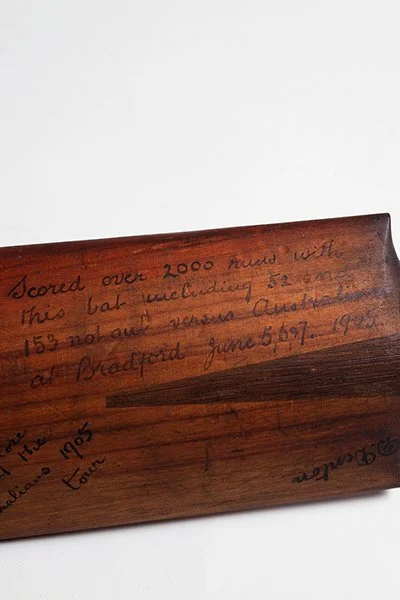 Scored over 2000 runs with
this bat including 52 and
153 not out versus Australians
at Bradford June 5, 6 & 7. 1905
of the
1905
tour
D. Denton